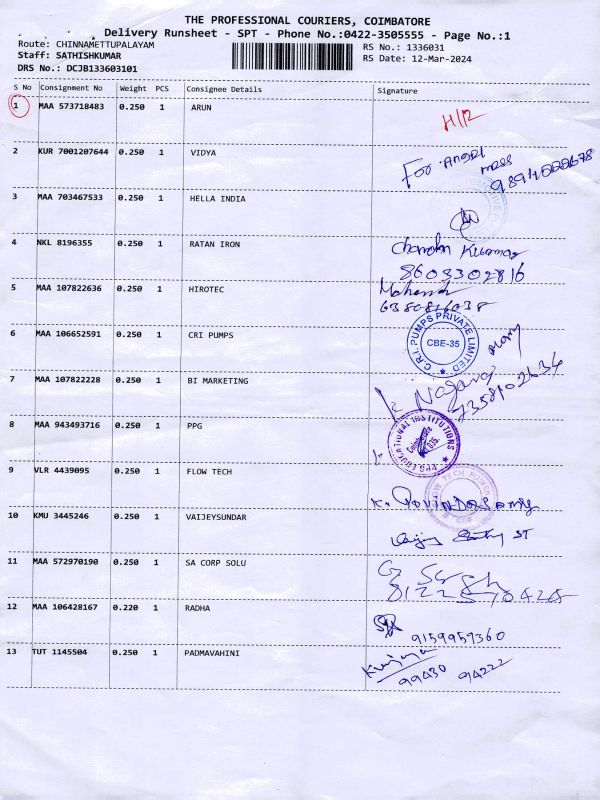 THE PROFESSIONAL COURIERS, COIMBATORE
Delivery Runsheet - SPT - Phone No.:0422-3505555 - Page No.:1
Route: CHINNAMETTUPALAYAM
RS No.: 1336031
Staff: SATHISHKUMAR
RS Date: 12-Mar-2024
DRS No.: DCJB133603101
S No Consignment No Weight PCS Consignee Details Signature
1 MAA 573718483 0.250 1 ARUN H/R
2 KUR 7001207644 0.250 1 VIDYA For Angel mess
3 MAA 703467533 0.250 1 HELLA INDIA
4 NKL 8196355 0.250 1 RATAN IRON Chandra Kumar
8603302816
5 MAA 107822636 0.250 1 HIROTEC
6380816038
6 MAA 106652591 0.250 1 CRI PUMPS C.R.I. PUMPS PRIVATE LIMITED CBE-35
7 MAA 107822228 0.250 1 BI MARKETING Nagaraj
7358102634
8 MAA 943493716 0.250 1 PPG PPG EDUCATIONAL INSTITUTIONS Coimbatore
9 VLR 4439095 0.250 1 FLOW TECH
10 KMU 3445246 0.250 1 VAIJEYSUNDAR
11 MAA 572970190 0.250 1 SA CORP SOLU
12 MAA 106428167 0.220 1 RADHA
9159959360
13 TUT 1145504 0.250 1 PADMAVAHINI
99430 94222